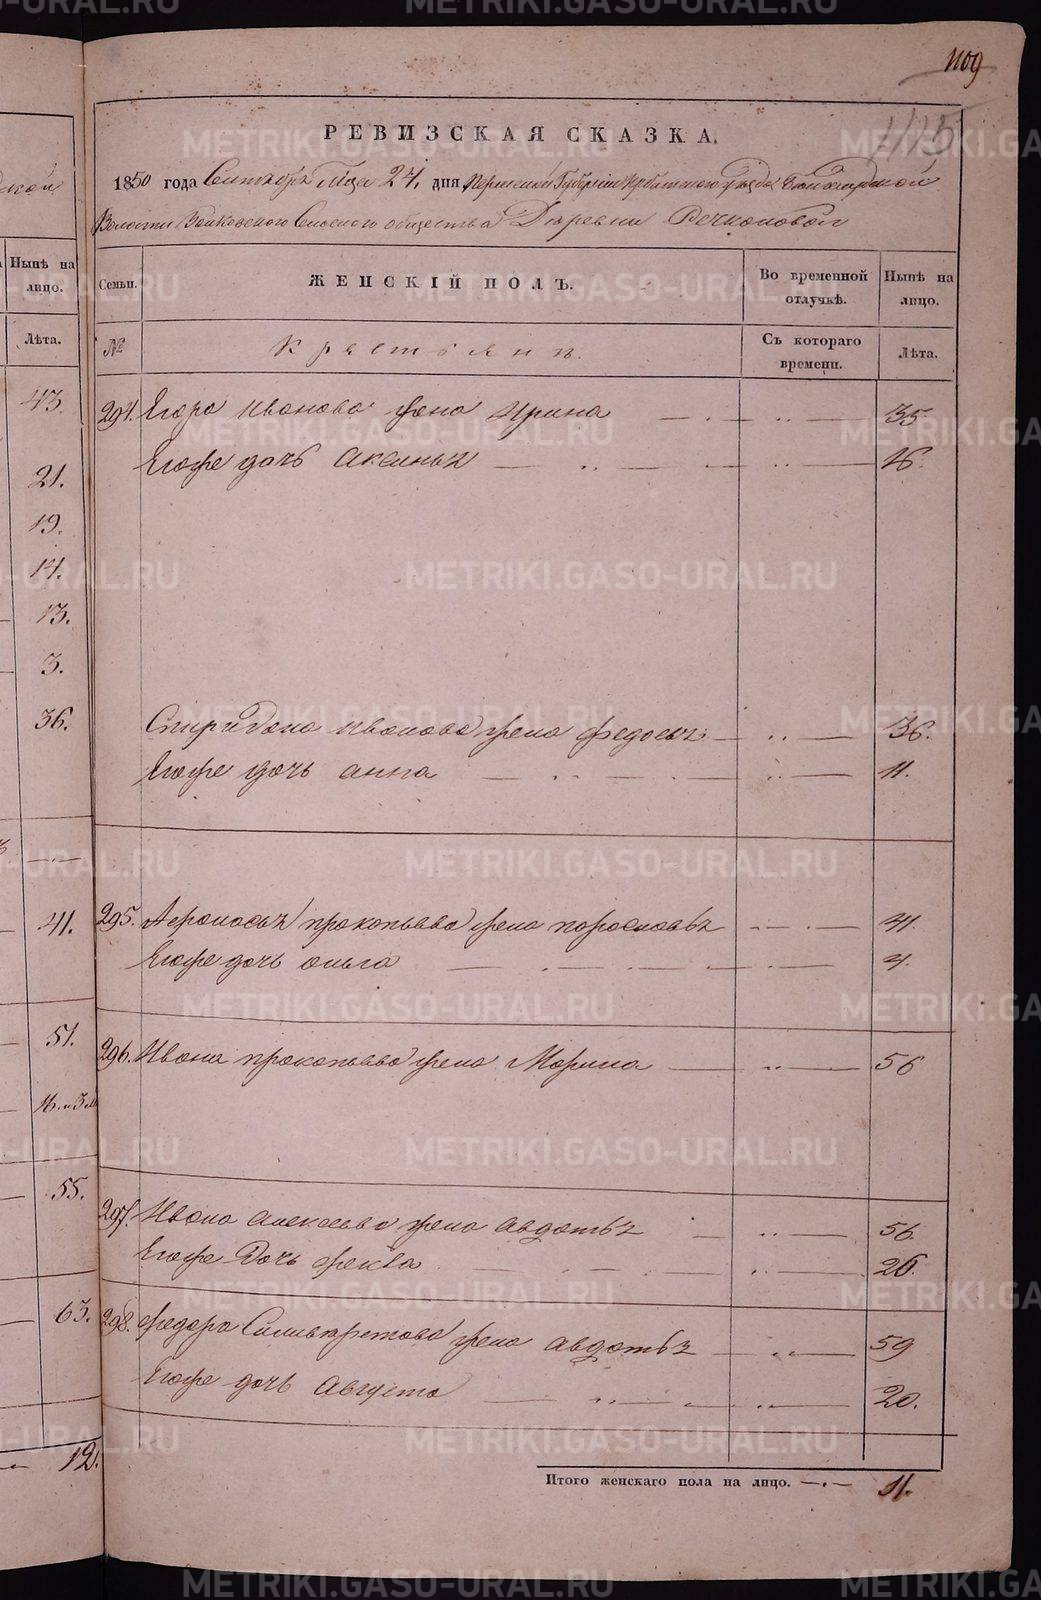 1109
1115
РЕВИЗСКАЯ СКАЗКА.
1850 года Сентября м҃ца 24. дня Пермской Губернии Ирбитского Уезда
Волости Сельского общества Деревни Речкаловой
Нынѣ на лицо.
Семьи.
ЖЕНСКІЙ ПОЛЪ.
Во временной отлучкѣ.
Нынѣ на лицо.
Лѣта.
№
Крестьяне.
Съ котораго времени.
Лѣта.
43.
21.
19.
14.
13.
3.
36.
41.
51.
55.
63.
12.
294. Егора Иванова жена Ирина 35
Егоже дочь Аксинья 16.
Спиридона Иванова жена Федосья 36.
Егоже дочь Анна 11.
295. Афонасья Прокопьева жена 41.
Егоже дочь Ольга 4.
296. Ивана Прокопьева жена Марина 56
297. Ивана Алексеева жена Авдотья 56
Егоже дочь Фекла 26.
298. Федора Сильвестрова жена Авдотья 59
Егоже дочь Августа 20.
Итого женскаго пола на лицо. 11.
METRIKI.GASO-URAL.RU